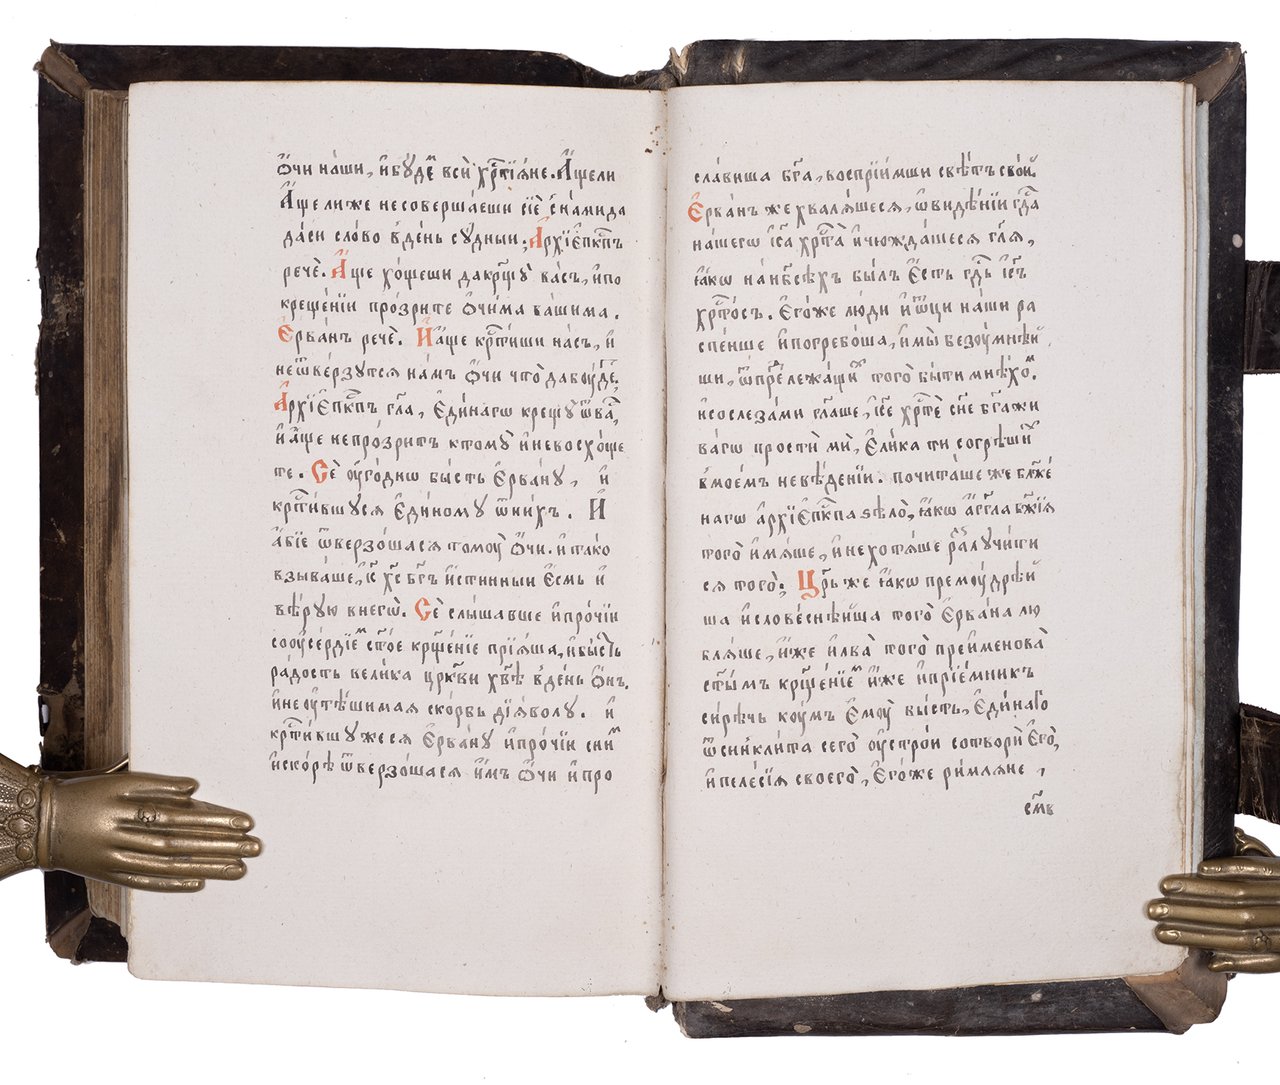 Ѻ҆чи на́ши, и҆бꙋ́деⷨ вси̑ хрⷭ҇тїѧ́не. А҆́щели
А҆́ще ли же не соверша́еши сїѐ с̾на́ми да
да́си сло́во в̾де́нь сꙋ́дный, А҆рхїє҆пⷭ҇кпъ
речѐ. А҆́ще хо́щеши да крⷭ҇щꙋ̀ ва́съ, и҆по
креще́нїи про́зрите ѻ҆чи́ма ва́шима.
Є҆рва́нъ речѐ. И҆а҆́ще крⷭ҇ти́ши на́съ, и҆
неѿве́рзꙋтсѧ на́мъ ѻ҆́чи что̀ да бꙋ́деⷮ.
А҆рхїє҆пⷭ҇кпъ гл҃а, є҆ди́наго крещꙋ̀ ѿва́ⷭ,
и҆а҆́ще непро́зритъ ктомꙋ̀ и҆невосхо́ще
те. Сѐ оу҆го́дно бы́сть Є҆рва́нꙋ, и҆
крⷭ҇ти́вшꙋсѧ є҆ди́номꙋ ѿни́хъ. И҆
а҆́бїе ѿверзо́шасѧ томꙋ̀ ѻ҆́чи. и҆та́ко
взыва́ше, і҆с҃ хс҃ бг҃ъ и҆́стинныи є҆́смь и҆
вѣ́рꙋю внего̀. Сѐ слы́шавше и҆про́чїи
соꙋсе́рдїеⷨ ст҃о́е крⷭ҇ще́нїе прїѧ́ша, и҆бы́сть
ра́дость вели́ка цр҃кви хв҃ѣ в̾де́нь ѻ҆́нъ.
и҆неоу҆тѣ́шимаѧ ско́рбь дїѧ́волꙋ. и҆
крⷭ҇ти́вшꙋжесѧ Є҆рва́нꙋ и҆про́чїи сни́ⷨ
и҆ско́рѣ ѿверзо́шасѧ и҆́мъ ѻ҆́чи и҆про
сла́виша бг҃а, воспрїи́мши свѣ́тъ сво́й.
Є҆рва́нъ же хвалѧ́шесѧ, ѡ҆ви́дѣнїи гдⷭ҇а
на́шего і҆с҃а хрⷭ҇та̀ и҆чюжда́шесѧ гл҃ѧ,
ꙗ҆́ко на нб҃сѣ́хъ бы́лъ є҆́сть гдⷭ҇ь і҆с҃ъ
хрⷭ҇то́съ. Є҆го́же лю́ди и҆ѻ҆тцы̀ на́ши ра
спе́нше и҆погребо́ша, и҆мы̀ безꙋ́мнѣй
ши, ѿпреⷣлежа́щиⷯ того̀ бы́ти мнѣ́хоⷨ.
и҆сослеза́ми гл҃аше, і҆с҃е хрⷭ҇тѐ сн҃е бг҃а жи
ва́го прости́ ми, є҆ли́ка ти согрѣши́ⷯ
в̾мое́мъ невѣ́денїи. почита́ше же блⷤе́
наго а҆рхїє҆пⷭ҇кпа ѕѣло̀, ꙗ҆́ко а҆́гг҃ла бж҃їѧ
того̀ и҆мѧ́ше, и҆нехотѧ́ше разлꙋчи́ти
сѧ того̀. Цр҃ь же ꙗ҆́ко премꙋ́дрѣй
ша и҆слове́снѣйша того̀ Є҆рва́на лю
блѧ́ше, и҆́же и҆лва̀ того̀ преименова̀
ст҃ы́мъ крⷭ҇ще́нїеⷨ и҆́же и҆прїе́мникъ
си́рѣчь кꙋ́мъ є҆мꙋ̀ бы́сть, є҆ди́наго
ѿсинкли́та сего̀ оу҆стро́й сотворѝ є҆го̀,
и҆пеле́сїѧ своего̀, є҆го́же ри́млѧне,
см҃в